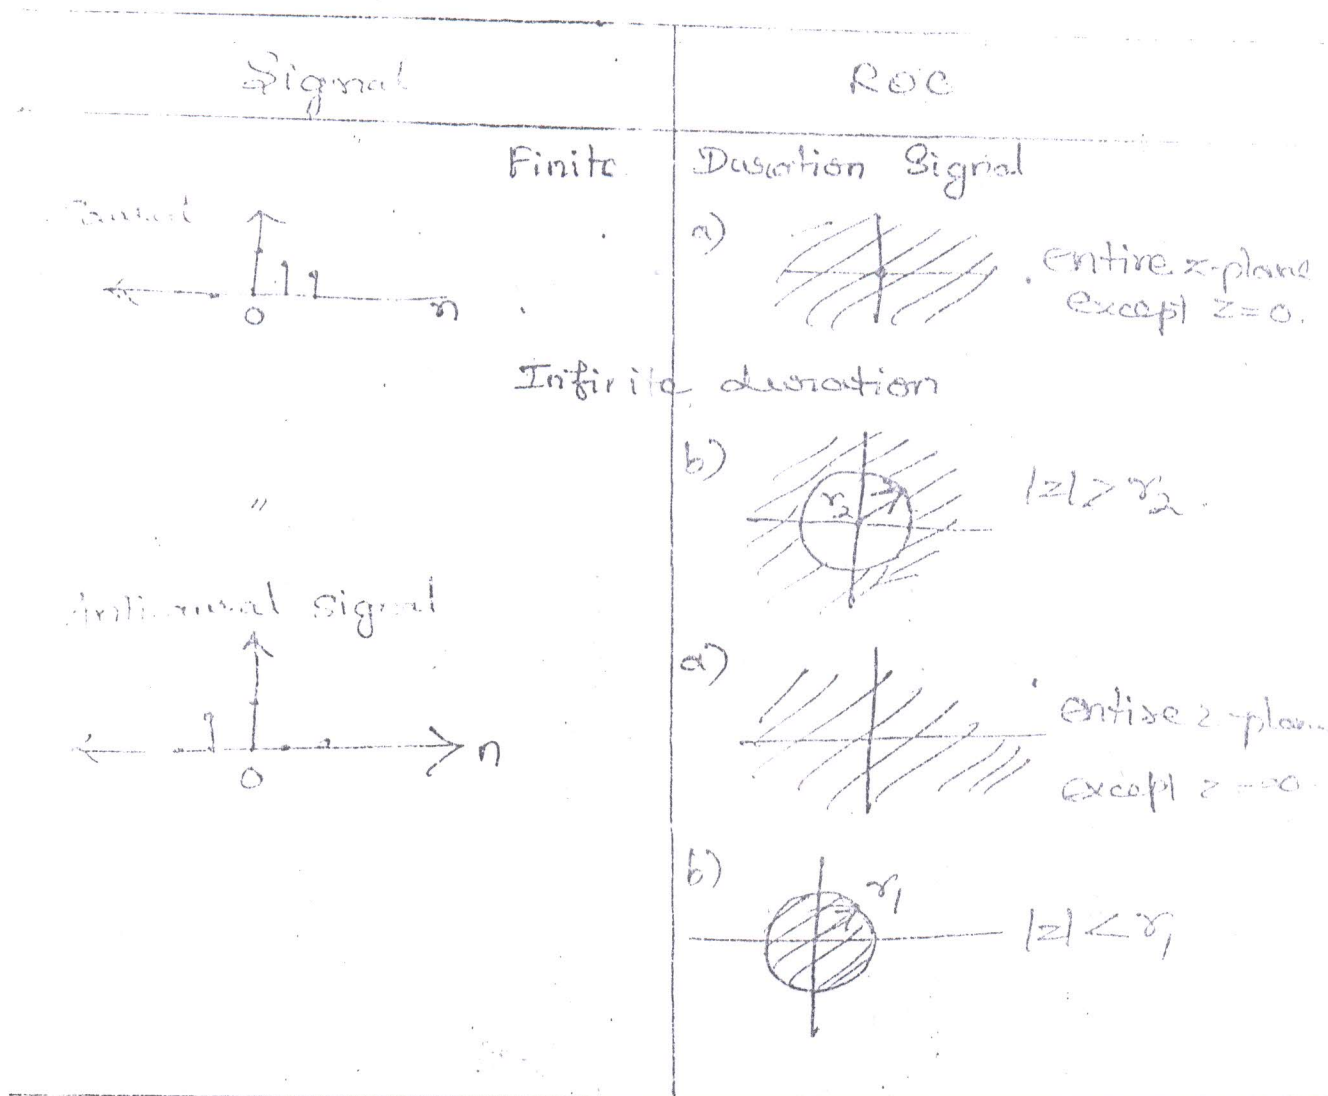 Signal
ROC
Finite Duration Signal
Causal
a)
0
n
entire z-plane
except z=0.
Infinite duration
b)
r2
|z| > r2.
"
Anticausal signal
0
n
a)
entire z-plane
except
b)
r1
|z| < r1